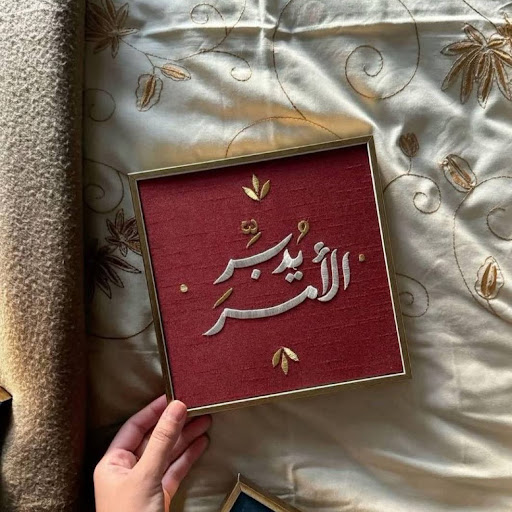 يُدَبِّرُ
الأَمْرَ